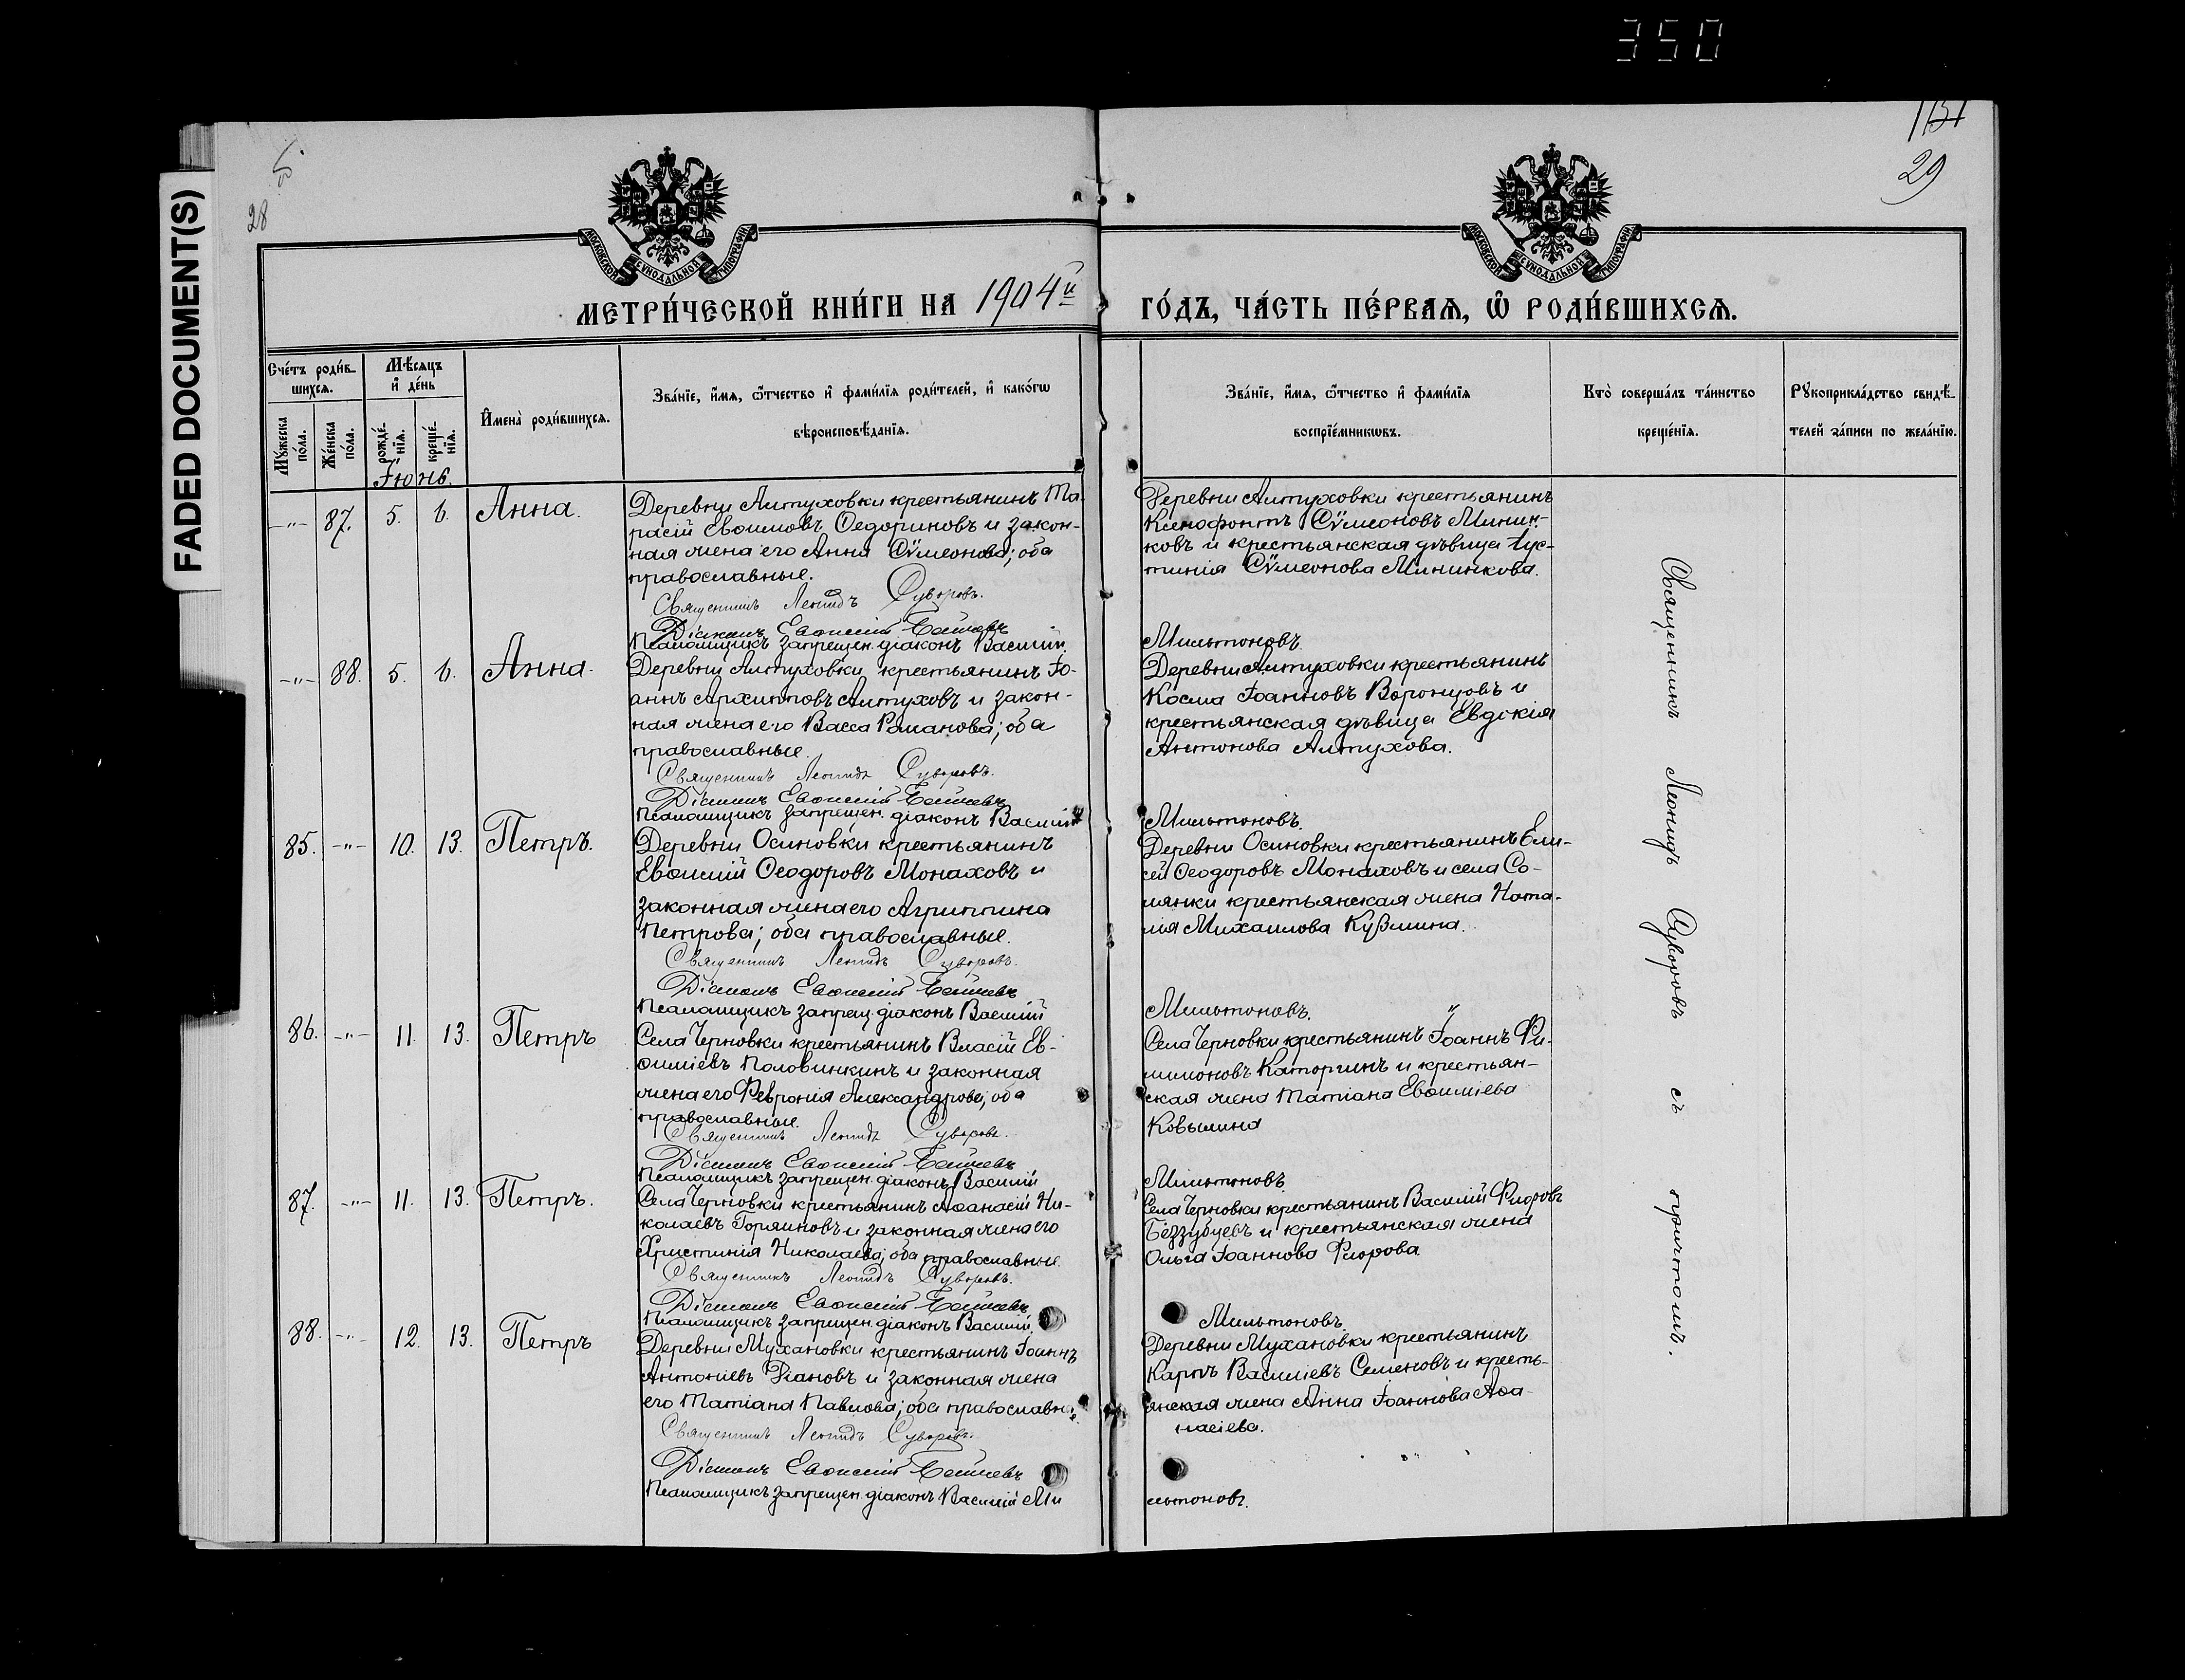 350
FADED DOCUMENT(S)
28
151
29
МОСКОВСКОЙ СѴНОДАЛЬНОЙ ТИПОГРАФІИ
МОСКОВСКОЙ СѴНОДАЛЬНОЙ ТИПОГРАФІИ
МЕТРИ́ЧЕСКОЙ КНИ́ГИ НА 1904й ГО́ДЪ, ЧА́СТЬ ПЕ́РВАѦ, Ѽ РОДИ́ВШИХСѦ.
Сче́тъ роди́в-
шихсѧ.
Мѣ́сѧцъ
и҆ де́нь
И҆мена̀ роди́вшихсѧ.
Зва́нїе, и҆́мѧ, ѻ҆́тчество и҆ фами́лїѧ роди́телей, и҆ како́гѡ
вѣроисповѣ́данїѧ.
Зва́нїе, и҆́мѧ, ѻ҆́тчество и҆ фами́лїѧ
воспрїе́мникѡвъ.
Кто̀ соверша́лъ та́инство
креще́нїѧ.
Рꙋкоприкла́дство свидѣ́-
телей за́писи по жела́нїю.
Мꙋ́жеска
по́ла.
Же́нска
по́ла.
рожде́-
нїѧ.
креще́-
нїѧ.
Іюнь.
-"- 87. 5. 6. Анна.
Деревни Алтуховки крестьянинъ Та-
расій Евѳимовъ Ѳедориновъ и закон-
ная жена его Анна Сѵмеонова; оба
православные.
Священникъ Леонидъ Суворовъ.
Діаконъ Евѳимій
Псаломщикъ запрещен. діаконъ Василій
Деревни Алтуховки крестьянинъ
Ксенофонтъ Сѵмеоновъ Минин-
ковъ и крестьянская дѣвица Іус-
тинія Сѵмеонова Мининкова.
Мильтоновъ.
-"- 88. 5. 6. Анна.
Деревни Алтуховки крестьянинъ Іо-
аннъ Архиповъ Алтуховъ и закон-
ная жена его Васса Романова; оба
православные.
Священникъ Леонидъ Суворовъ.
Діаконъ Евѳимій
Псаломщикъ запрещен. діаконъ Василій
Деревни Алтуховки крестьянинъ
Косма Іоанновъ Воронцовъ и
крестьянская дѣвица Евдокія
Антонова Алтухова.
Мильтоновъ.
85. -"- 10. 13. Петръ.
Деревни Осиновки крестьянинъ
Евѳимій Ѳеодоровъ Монаховъ и
законная жена его Агриппина
Петрова; оба православные.
Священникъ Леонидъ Суворовъ.
Діаконъ Евѳимій
Псаломщикъ запрещ. діаконъ Василій
Деревни Осиновки крестьянинъ Ели-
сей Ѳеодоровъ Монаховъ и села Со-
лянки крестьянская жена Ната-
лія Михаилова Кузмина.
Мильтоновъ.
86. -"- 11. 13. Петръ
Села Черновки крестьянинъ Власій Ев-
ѳиміевъ Половинкинъ и законная
жена его Феѵронія Александрова; оба
православные.
Священникъ Леонидъ Суворовъ.
Діаконъ Евѳимій
Псаломщикъ запрещен. діаконъ Василій
Села Черновки крестьянинъ Іоаннъ Фи-
лимоновъ Каторгинъ и крестьян-
ская жена Татіана Евѳиміева
Ковылина
Мильтоновъ.
87. -"- 11. 13. Петръ.
Села Черновки крестьянинъ Аѳанасій Ни-
колаевъ Горяиновъ и законная жена его
Христинія Николаева; оба православные.
Священникъ Леонидъ Суворовъ.
Діаконъ Евѳимій
Псаломщикъ запрещен. діаконъ Василій
Села Черновки крестьянинъ Василій Флоровъ
Беззубцевъ и крестьянская жена
Ольга Іоаннова Флорова.
Мильтоновъ.
88. -"- 12. 13. Петръ
Деревни Мухановки крестьянинъ Іоаннъ
Антоніевъ и законная жена
его Татіана Павлова; оба православные
Священникъ Леонидъ Суворовъ.
Діаконъ Евѳимій
Псаломщикъ запрещен. діаконъ Василій Ми
Деревни Мухановки крестьянинъ
Карпъ Василіевъ Семеновъ и кресть-
янская жена Анна Іоаннова Аѳа-
насіева.
льтоновъ.
Священникъ Леонидъ Суворовъ съ причтомъ.